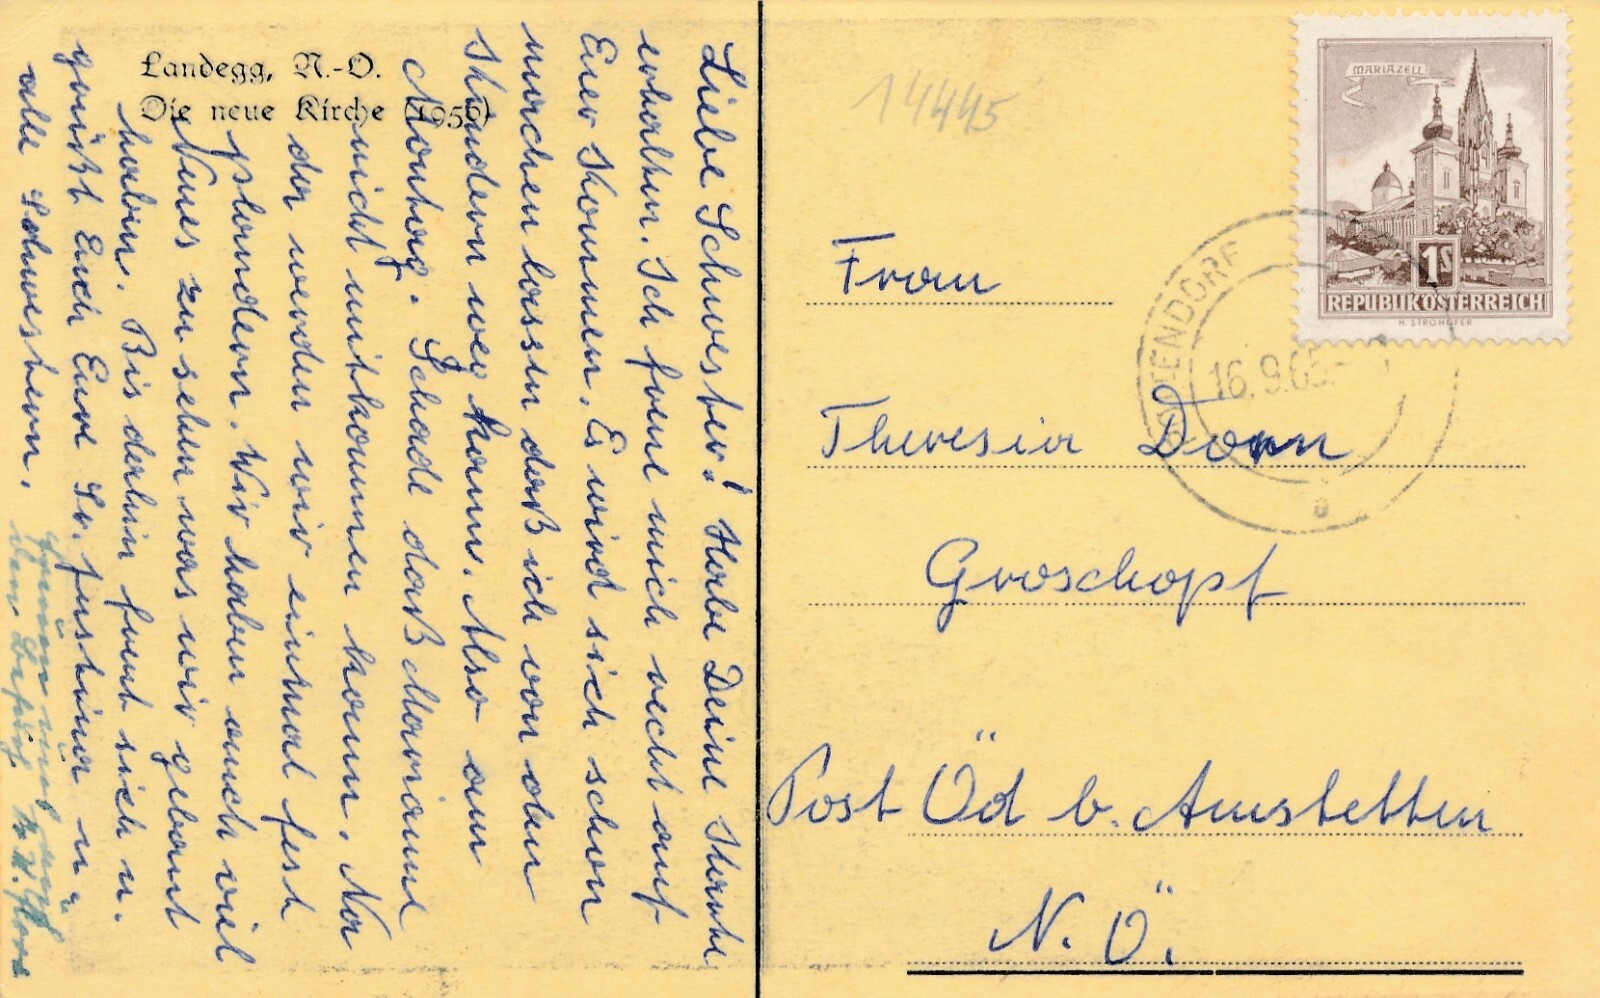 Landegg, N.-Ö.
Die neue Kirche (1956)
Liebe Schwester! Habe Deine Karte
erhalten. Ich freue mich recht auf
Euer Kommen. Es wird sich schon
machen lassen daß ich von oben
runter kann. Also am
Montag. Schade daß Marianne
nicht mitkommen kann. Na
da werden wir einmal fest
plaudern. Wir haben auch viel
Neues zu sehen was wir gebaut
haben. Bis dahin freut sich u.
grüßt Euch Eure Sr. Justina u.
alle Schwestern.
14445
MARIAZELL
1S
REPUBLIK ÖSTERREICH
16.9.65
Frau
Theresia Dorn
Groschopf
Post Öd b. Amstetten
N. Ö.